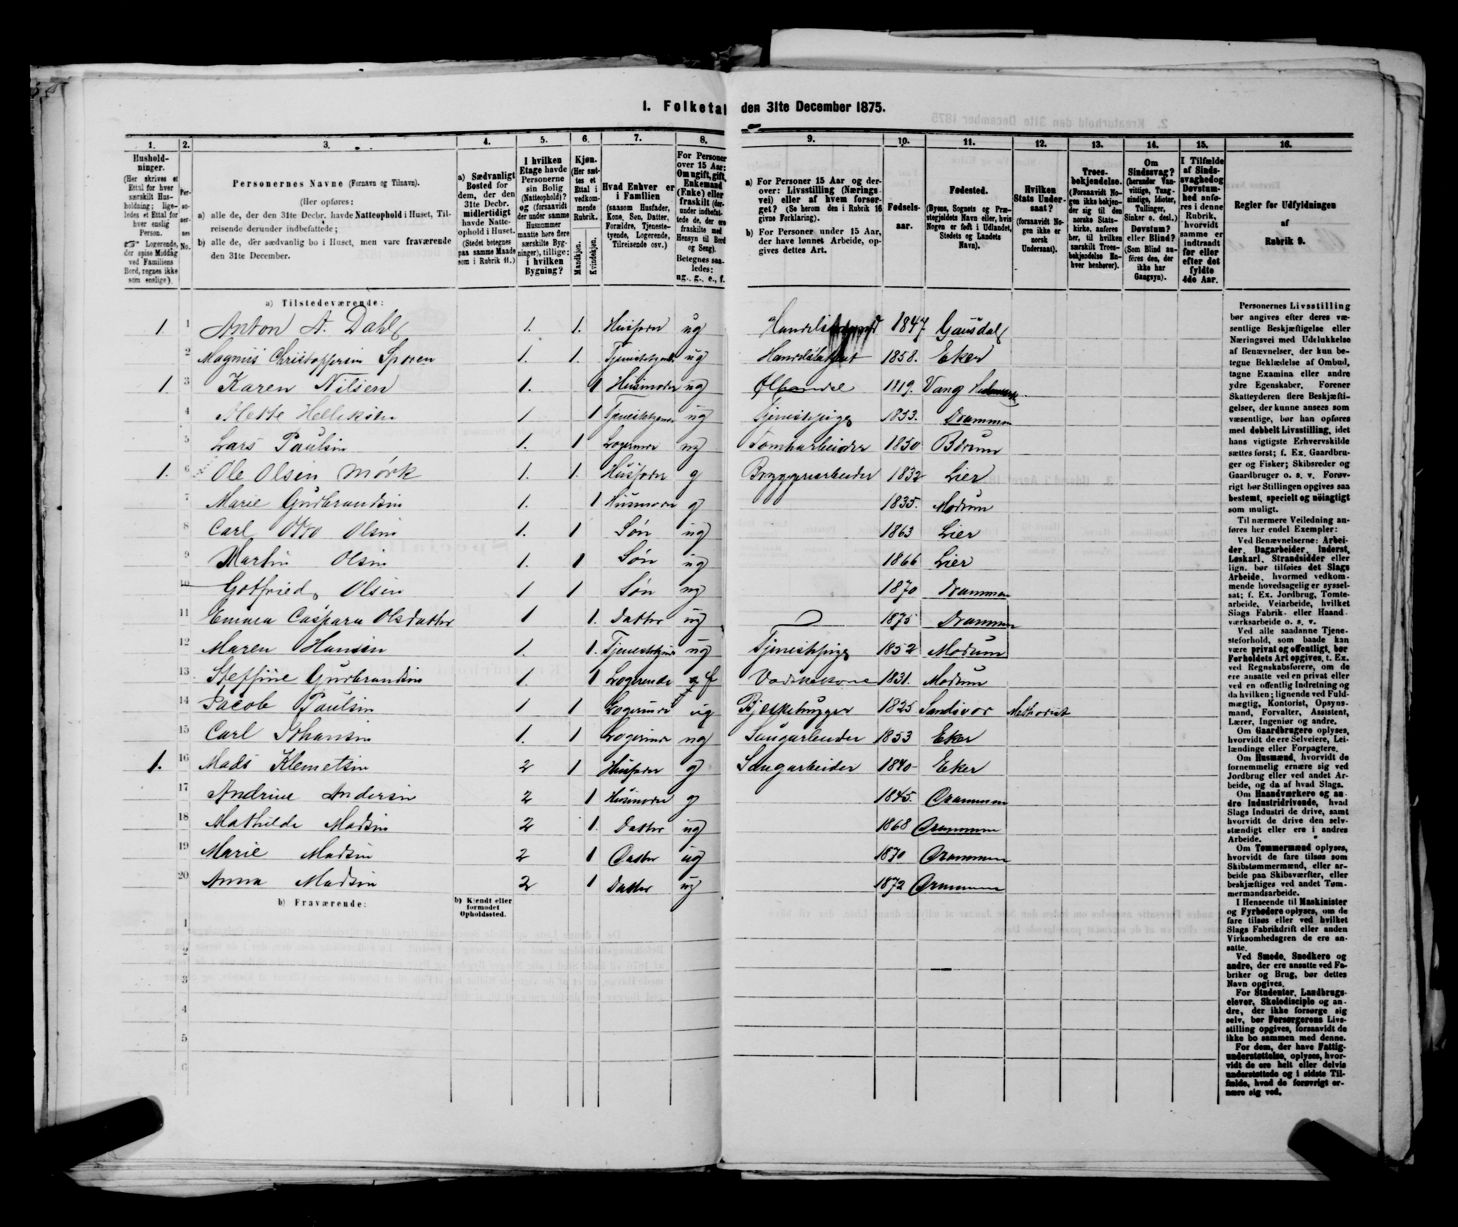 1. Folketal den 31te December 1875.
1. 2. 3. 4. 5. 6. 7. 8. 9. 10. 11. 12. 13. 14. 15. 16.
Husholdninger.
(Her skrives et Ettal for hver særskilt Husholdning; ligeledes et Ettal for hver enslig Person.
Logerende, der spise Middag ved Familiens Bord, regnes ikke som enslige).
Personernes No.
Personernes Navne (Fornavn og Tilnavn).
(Her opføres:
a) alle de, der den 31te Decbr. havde Natteophold i Huset, Tilreisende derunder indbefattede;
b) alle de, der sædvanlig bo i Huset, men vare fraværende den 31te December.
a) Sædvanligt Bosted for dem, der den 31te Decbr. midlertidigt havde Natteophold i Huset.
(Stedet betegnes paa samme Maade som i Rubrik 11.)
I hvilken Etage havde Personerne sin Bolig (Natteophold)? og (forsaavidt der under samme Husnummer maatte høre flere særskilte Bygninger), tillige: i hvilken Bygning?
Kjøn.
(Her sættes et Ettal i vedkommende Rubrik.
Mandkjøn.
Kvindekjøn.
Hvad Enhver er i Familien
(saasom Husfader, Kone, Søn, Datter, Forældre, Tjenestetyende, Logerende, Tilreisende osv.)
For Personer over 15 Aar: Om ugift, gift, Enkemand (Enke) eller fraskilt
Betegnes saaledes: ug., g., e., f.
a) For Personer 15 Aar og derover: Livsstilling (Næringsvei) eller af hvem forsørget? (Se herom den i Rubrik 16 givne Forklaring).
b) For Personer under 15 Aar, der have lønnet Arbeide, opgives dettes Art.
Fødselsaar.
Fødested.
(Byens, Sognets og Præstegjeldets Navn eller, hvis Nogen er født i Udlandet, Stedets og Landets Navn).
Hvilken Stats Undersaat?
(forsaavidt Nogen ikke er norsk Undersaat).
Troesbekjendelse.
(Forsaavidt Nogen ikke bekjender sig til den norske Statskirke, anføres her, til hvilken særskilt Troesbekjendelse Enhver henhører).
Om Sindssvag? (herunder Vanvittige, Tungsindige, Idioter, Tullinger, Sinker o. desl.) Døvstum? eller Blind? (Som Blind anføres den, der ikke har Gangsyn).
I Tilfælde af Sindssvaghed og Døvstumhed anføres i denne Rubrik, hvorvidt samme er indtraadt før eller efter det fyldte 4de Aar.
Regler for Udfyldningen
af
Rubrik 9.
a) Tilstedeværende:
1. 1 Anton A. Dahl 1. 1. Husfader ug 1847 Gausdal
2 Magnus Christoffersen 1. 1. Tjenestetyende ug 1858. Eker
1. 3 Karen Nilsen 1. 1 Husmoder ug Ølhandel 1819. Vang Hedemark
4 Mette Helliksen 1 1 Tjenestetyende ug Tjenestepige 1853. Drammen
5 Lars Paulsen 1. 1 Logerende ug Tomtearbeider 1850 Bærum
1. 6 Ole Olsen Mørk 1. 1 Husfader g Bryggearbeider 1832 Lier
7 Marie Gudbrandsen 1. 1 Husmoder g 1835. Modum
8 Carl Otto Olsen 1. 1 Søn ug 1863 Lier
9 Martin Olsen 1. 1 Søn ug 1866 Lier
10 Gotfried Olsen 1. 1 Søn ug 1870 Drammen
11 Emma Caspara Olsdatter 1 1. Datter ug 1875 Drammen
12 Maren Hansen 1. 1 Tjenestetyende ug Tjenestepige 1852 Modum
13 Steffine Gudbrandsen 1. 1 Logerende f Vadskekone 1831. Modum
14 Jacob Paulsen 1 1 Logerende ug Bjelkehugger 1825 Methodist
15 Carl Johansen 1. 1 Logerende ug Saugarbeider 1853 Eker
1. 16 Mads Klemetsen 2 1 Husfader g Saugarbeider 1840 Eker
17 Andrine Andersen 2 1 Husmoder g 1845. Drammen
18 Mathilde Madsen 2 1. Datter ug 1868 Drammen
19 Marie Madsen 2 1 Datter ug 1870 Drammen
20 Anna Madsen 2 1 Datter ug 1872 Drammen
b) Fraværende:
b) Kjendt eller formodet Opholdssted.
1
2
3
4
5
6
Personernes Livsstilling
bør angives efter deres væ-
sentlige Beskjæftigelse eller
Næringsvei med Udelukkelse
af Benævnelser, der kun be-
tegne Beklædelse af Ombud,
tagne Examina eller andre
ydre Egenskaber. Forener
Skatteyderen flere Beskjæfti-
gelser, der kunne ansees som
væsentlige, bør han opføres
med dobbelt Livsstilling, idet
hans vigtigste Erhvervskilde
sættes først; f. Ex. Gaardbru-
ger og Fisker; Skibsreder og
Gaardbruger o. s. v. Forøv-
rigt bør Stillingen opgives saa
bestemt, specielt og nøiagtigt
som muligt.
Til nærmere Veiledning an-
føres her endel Exempler:
Ved Benævnelserne: Arbei-
der, Dagarbeider, Inderst,
Løskarl, Strandsidder eller
lign. bør tilføies det Slags
Arbeide, hvormed vedkom-
mende hovedsagelig er syssel-
sat; f. Ex. Jordbrug, Tomte-
arbeide, Veiarbeide, hvilket
Slags Fabrik- eller Haand-
værksarbeide o. s. v.
Ved alle saadanne Tjene-
steforhold, som baade kan
være privat og offentligt, bør
Forholdets Art opgives, f. Ex.
ved Regnskabsførere, om de
ere ansatte ved en privat eller
ved en offentlig Indretning og
da hvilken; lignende ved Fuld-
mægtig, Kontorist, Opsyns-
mand, Forvalter, Assistent,
Lærer, Ingeniør og andre.
Om Gaardbrugere oplyses,
hvorvidt de ere Selveiere, Lei-
lændinge eller Forpagtere.
Om Husmænd, hvorvidt de
fornemmelig ernære sig ved
Jordbrug eller ved andet Ar-
beide, og da af hvad Slags.
Om Haandværkere og an-
dre Industridrivende, hvad
Slags Industri de drive, samt
hvorvidt de drive den selv-
stændigt eller ere i andres
Arbeide.
Om Tømmermænd oplyses,
hvorvidt de fare tilsøs som
Skibstømmermænd, eller ar-
beide paa Skibsværfter, eller
beskjæftiges ved andet Tøm-
mermandsarbeide.
I Henseende til Maskinister
og Fyrbødere oplyses, om de
fare tilsøs eller ved hvilket
Slags Fabrikdrift eller anden
Virksomhedsgren de ere an-
satte.
Ved Smede, Snedkere og
andre, der ere ansatte ved Fa-
briker og Brug, bør dettes
Navn opgives.
For Studenter, Landbrugs-
elever, Skoledisciple og an-
dre, der ikke forsørge sig
selv, bør Forsørgerens Livs-
stilling opgives, forsaavidt de
ikke bo sammen med denne.
For dem, der have Fattig-
understøttelse, oplyses, hvor-
vidt de ere helt eller delvis
understøttede og i sidste Til-
fælde, hvad de forøvrigt er-
nære sig ved.